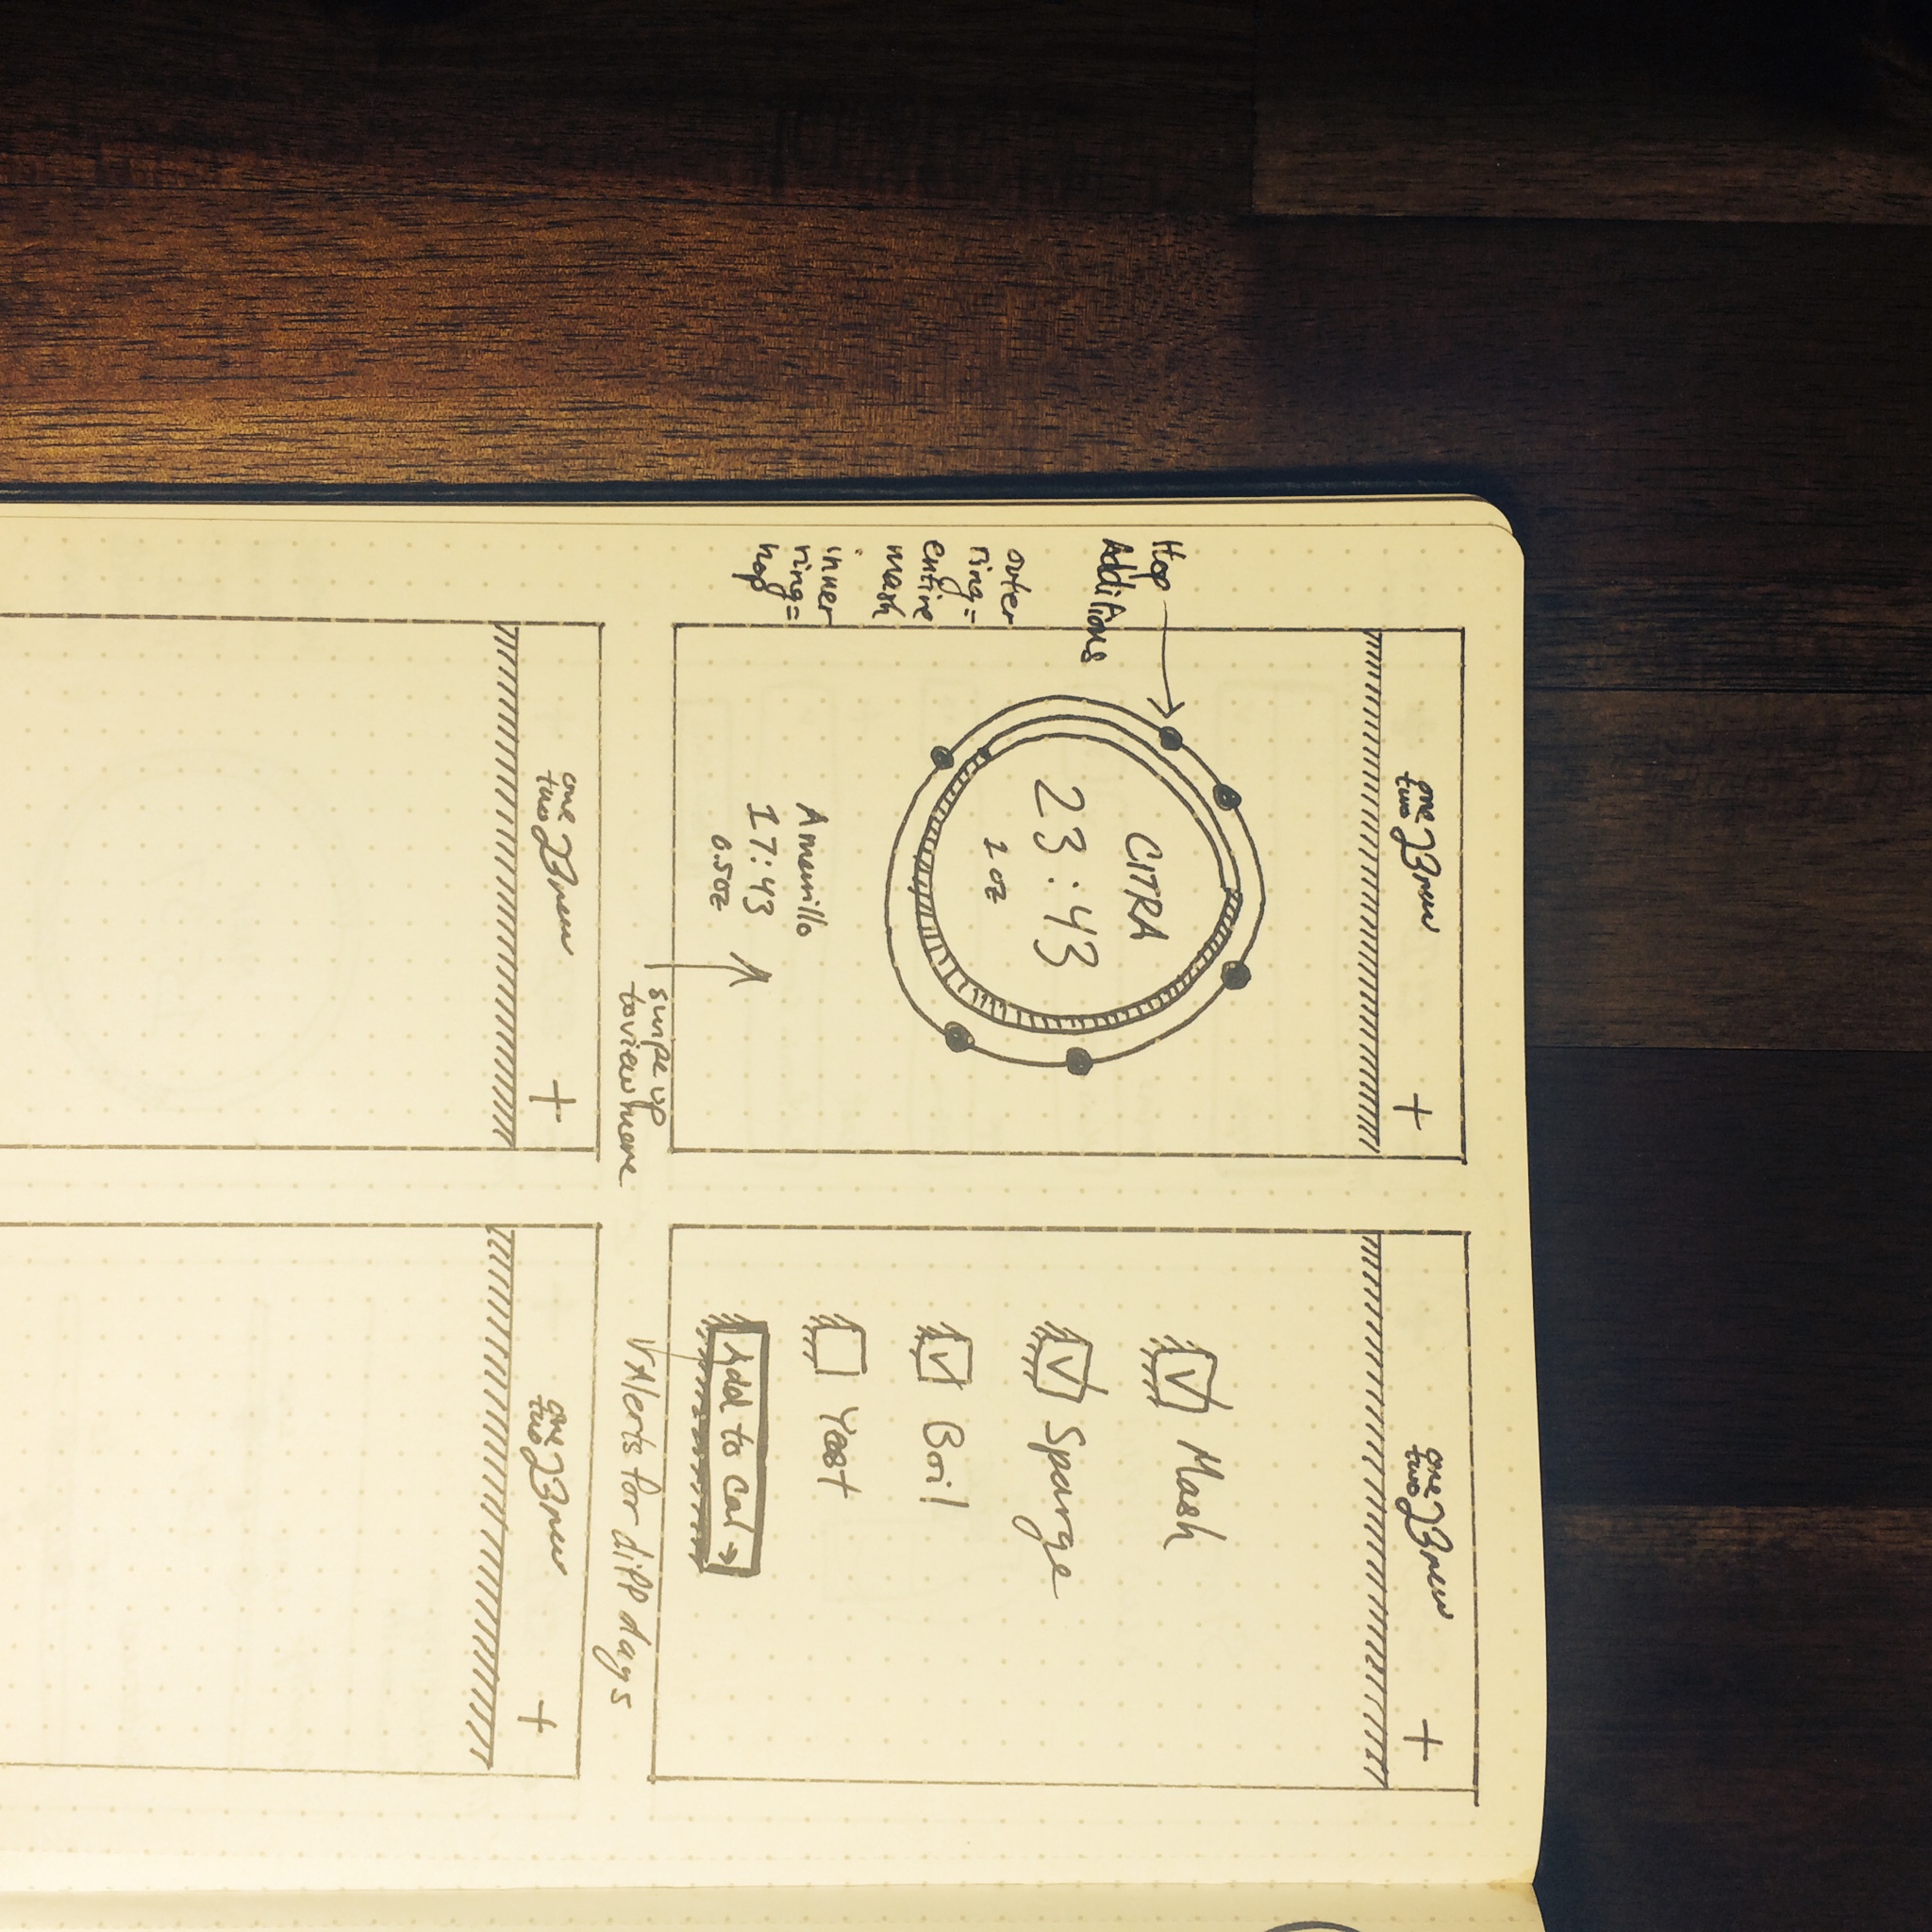 one
two Brew
+
Hop
Additions
outer
ring =
entire
mash
inner
ring =
hop
CITRA
23:43
1 oz
Amarillo
17:43
0.5oz
swipe up
to view more
one
two Brew
+
Mash
Sparge
Boil
Yeast
Add to Cal →
Alerts for diff days
one
two Brew
+
one
two Brew
+